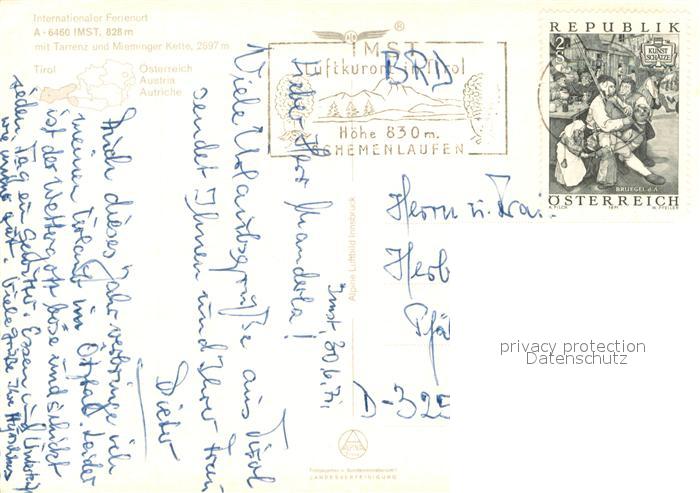 Internationaler Ferienort
A - 6460 IMST, 828 m
mit Tarrenz und Mieminger Kette, 2597 m
Tirol
Österreich
Austria
Autriche
IMST
Luftkurort Tirol
Höhe 830 m.
SCHEMENLAUFEN
BRD
REPUBLIK
2 S
KUNST
SCHÄTZE
BRUEGEL d.Ä.
ÖSTERREICH
1971
Imst, 30.6.71
Lieber Herr Manderla!
Viele Urlaubsgrüße aus Tirol
sendet Ihnen und Ihrer Frau
Dieter
Auch dieses Jahr verbringe ich
meinen Urlaub im Ötztal. Leider
ist der Wettergott böse und schickt
jeden Tag ein Gewitter. Essen und
wie immer gut. Viele Grüße Ihr
Herrn u. Frau
Herb
D-325
Alpine Luftbild Innsbruck
ALPINE
LANDESVERTEIDIGUNG
privacy protection
Datenschutz